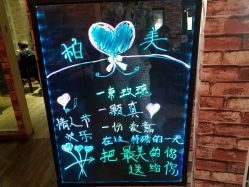 柏 美
一束玫瑰
一颗真
一份爱意
在这特殊的一天
把最美的你
送给你
情人节
快乐